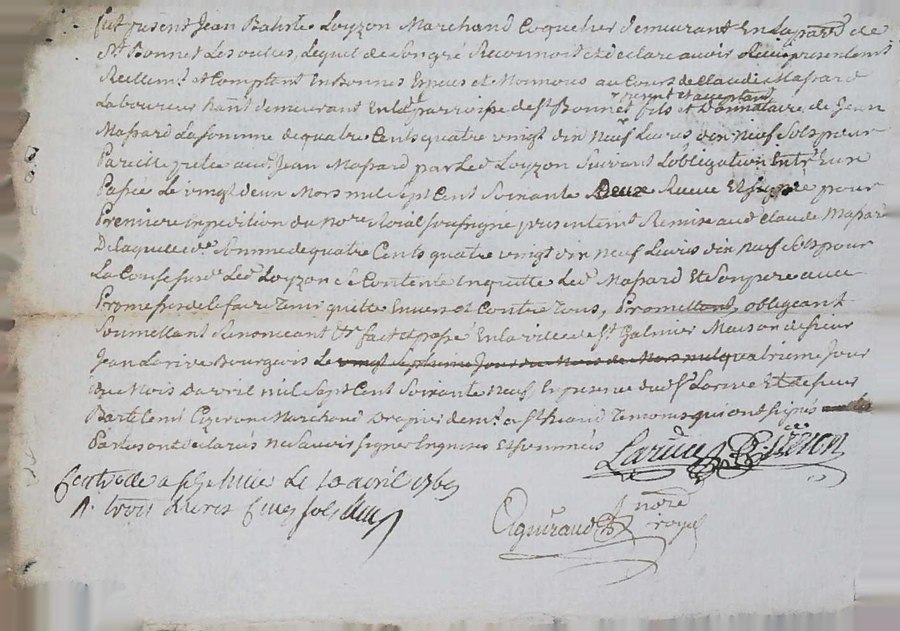 fut présent Jean Babtiste Loyzon Marchand Coquetier demeurant En La parr.se de
St Bonnet Les oules, Lequel de Son gré Reconnoit et declare avoir
Reellem.t et Comptent En Bonnes Espces et Monnoies au Cours de Claude Massard
Laboureur demeurant En lad parroisse de St Bonnet fils et Donnataire de Jean
present et acceptant
Massard La Somme de quatre Cents quatre vingt dix Neuf Livres dix neuf Sols pour
Pareille jean Massard par Led Loyzon Suivant L'obligation
Passée Le vingt deux Mars mil Sept Cent Soixante Deux Receue Et signée pour
Premiere Expedition du no.re Roial Soussigné presentem.t Remise aud Claude Massard
De laquelle d.e Somme de quatre Cents quatre vingt dix neuf Livres dix neuf Sols pour
La Cause sus de Led Loyzon Contente En quitte Led Massard Et Son pere avec
Promesse de Le faire Tenir quitte Envers et Contre Tous, Promettant, obligeant
Soumettant Renonceant &c fait et passé En la ville de St Galmier Maison de sieur
Jean Larive Bourgeois Le vingt Septieme Jour du Mois de Mars mil quatrieme Jour
Du Mois D'avril mil Sept Cent Soixante Neuf En presence dud Sr Larive Et de sieur
Bartelemi Cizeron Marchand Drapier dem.t a St Temoins qui ont signés
Parties ont declarés ne Savoir signer Enquises Et sommées
Larive Cizeron
Controlle a St Galmier Le 10 avril 1769
R. trois Livres Cinq sols
Eiguiraud noré
royal